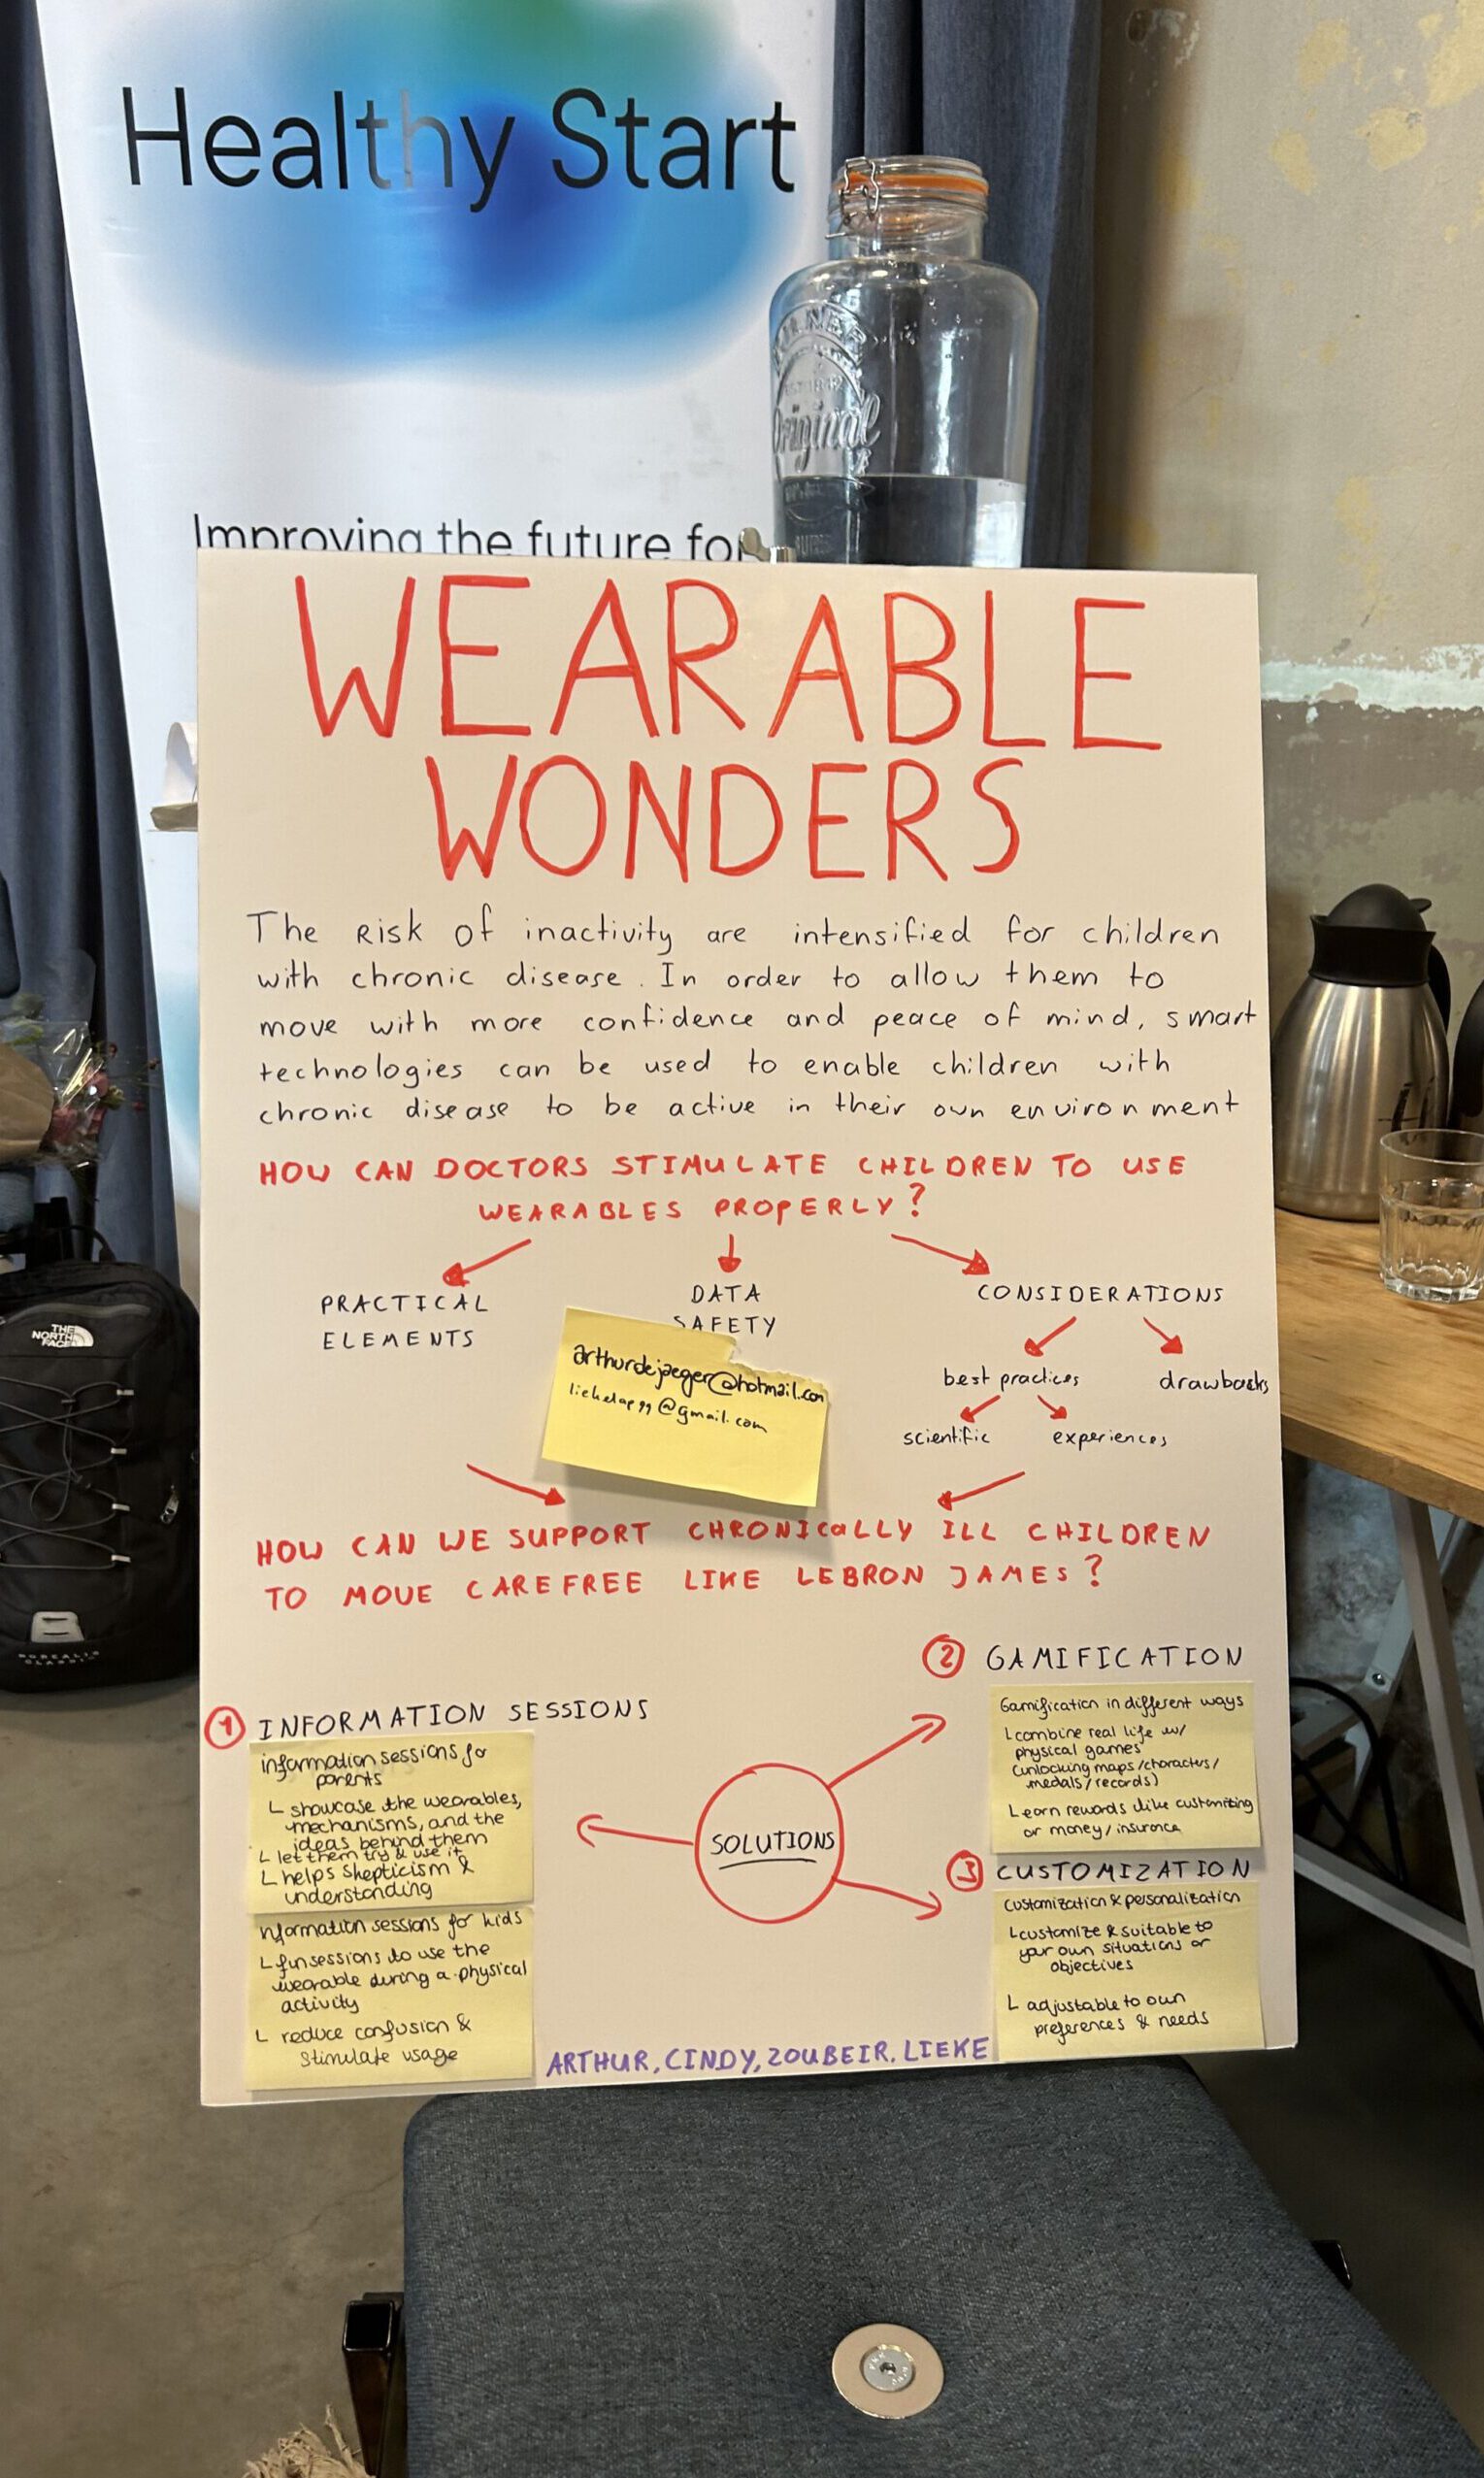 Healthy Start
Improving the future for
Original
WEARABLE
WONDERS
The Risk of inactivity are intensified for children
with chronic disease. In order to allow them to
move with more confidence and peace of mind, smart
technologies can be used to enable children with
chronic disease to be active in their own environment
HOW CAN DOCTORS STIMULATE CHILDREN TO USE
WEARABLES PROPERLY?
PRACTICAL
ELEMENTS
DATA
SAFETY
CONSIDERATIONS
best practices
drawbacks
scientific
experiences
arthurdejaeger@hotmail.com
@gmail.com
HOW CAN WE SUPPORT CHRONICALLY ILL CHILDREN
TO MOVE CAREFREE LIKE LEBRON JAMES?
SOLUTIONS
1 INFORMATION SESSIONS
information sessions for
parents
L showcase the wearables,
mechanisms, and the
ideas behind them
L let them try & use it
L helps skepticism &
understanding
information sessions for kids
L fun sessions to use the
wearable during a physical
activity
L reduce confusion &
stimulate usage
2 GAMIFICATION
Gamification in different ways
L combine real life w/
physical games
(unlocking maps/characters/
medals/records)
L earn rewards like customizing
or money/insurance
3 CUSTOMIZATION
Customization & personalization
L customize & suitable to
your own situations or
objectives
L adjustable to own
preferences & needs
ARTHUR, CINDY, ZOUBEIR, LIEKE
THE
NORTH
FACE
BOREALIS
CLASSIC